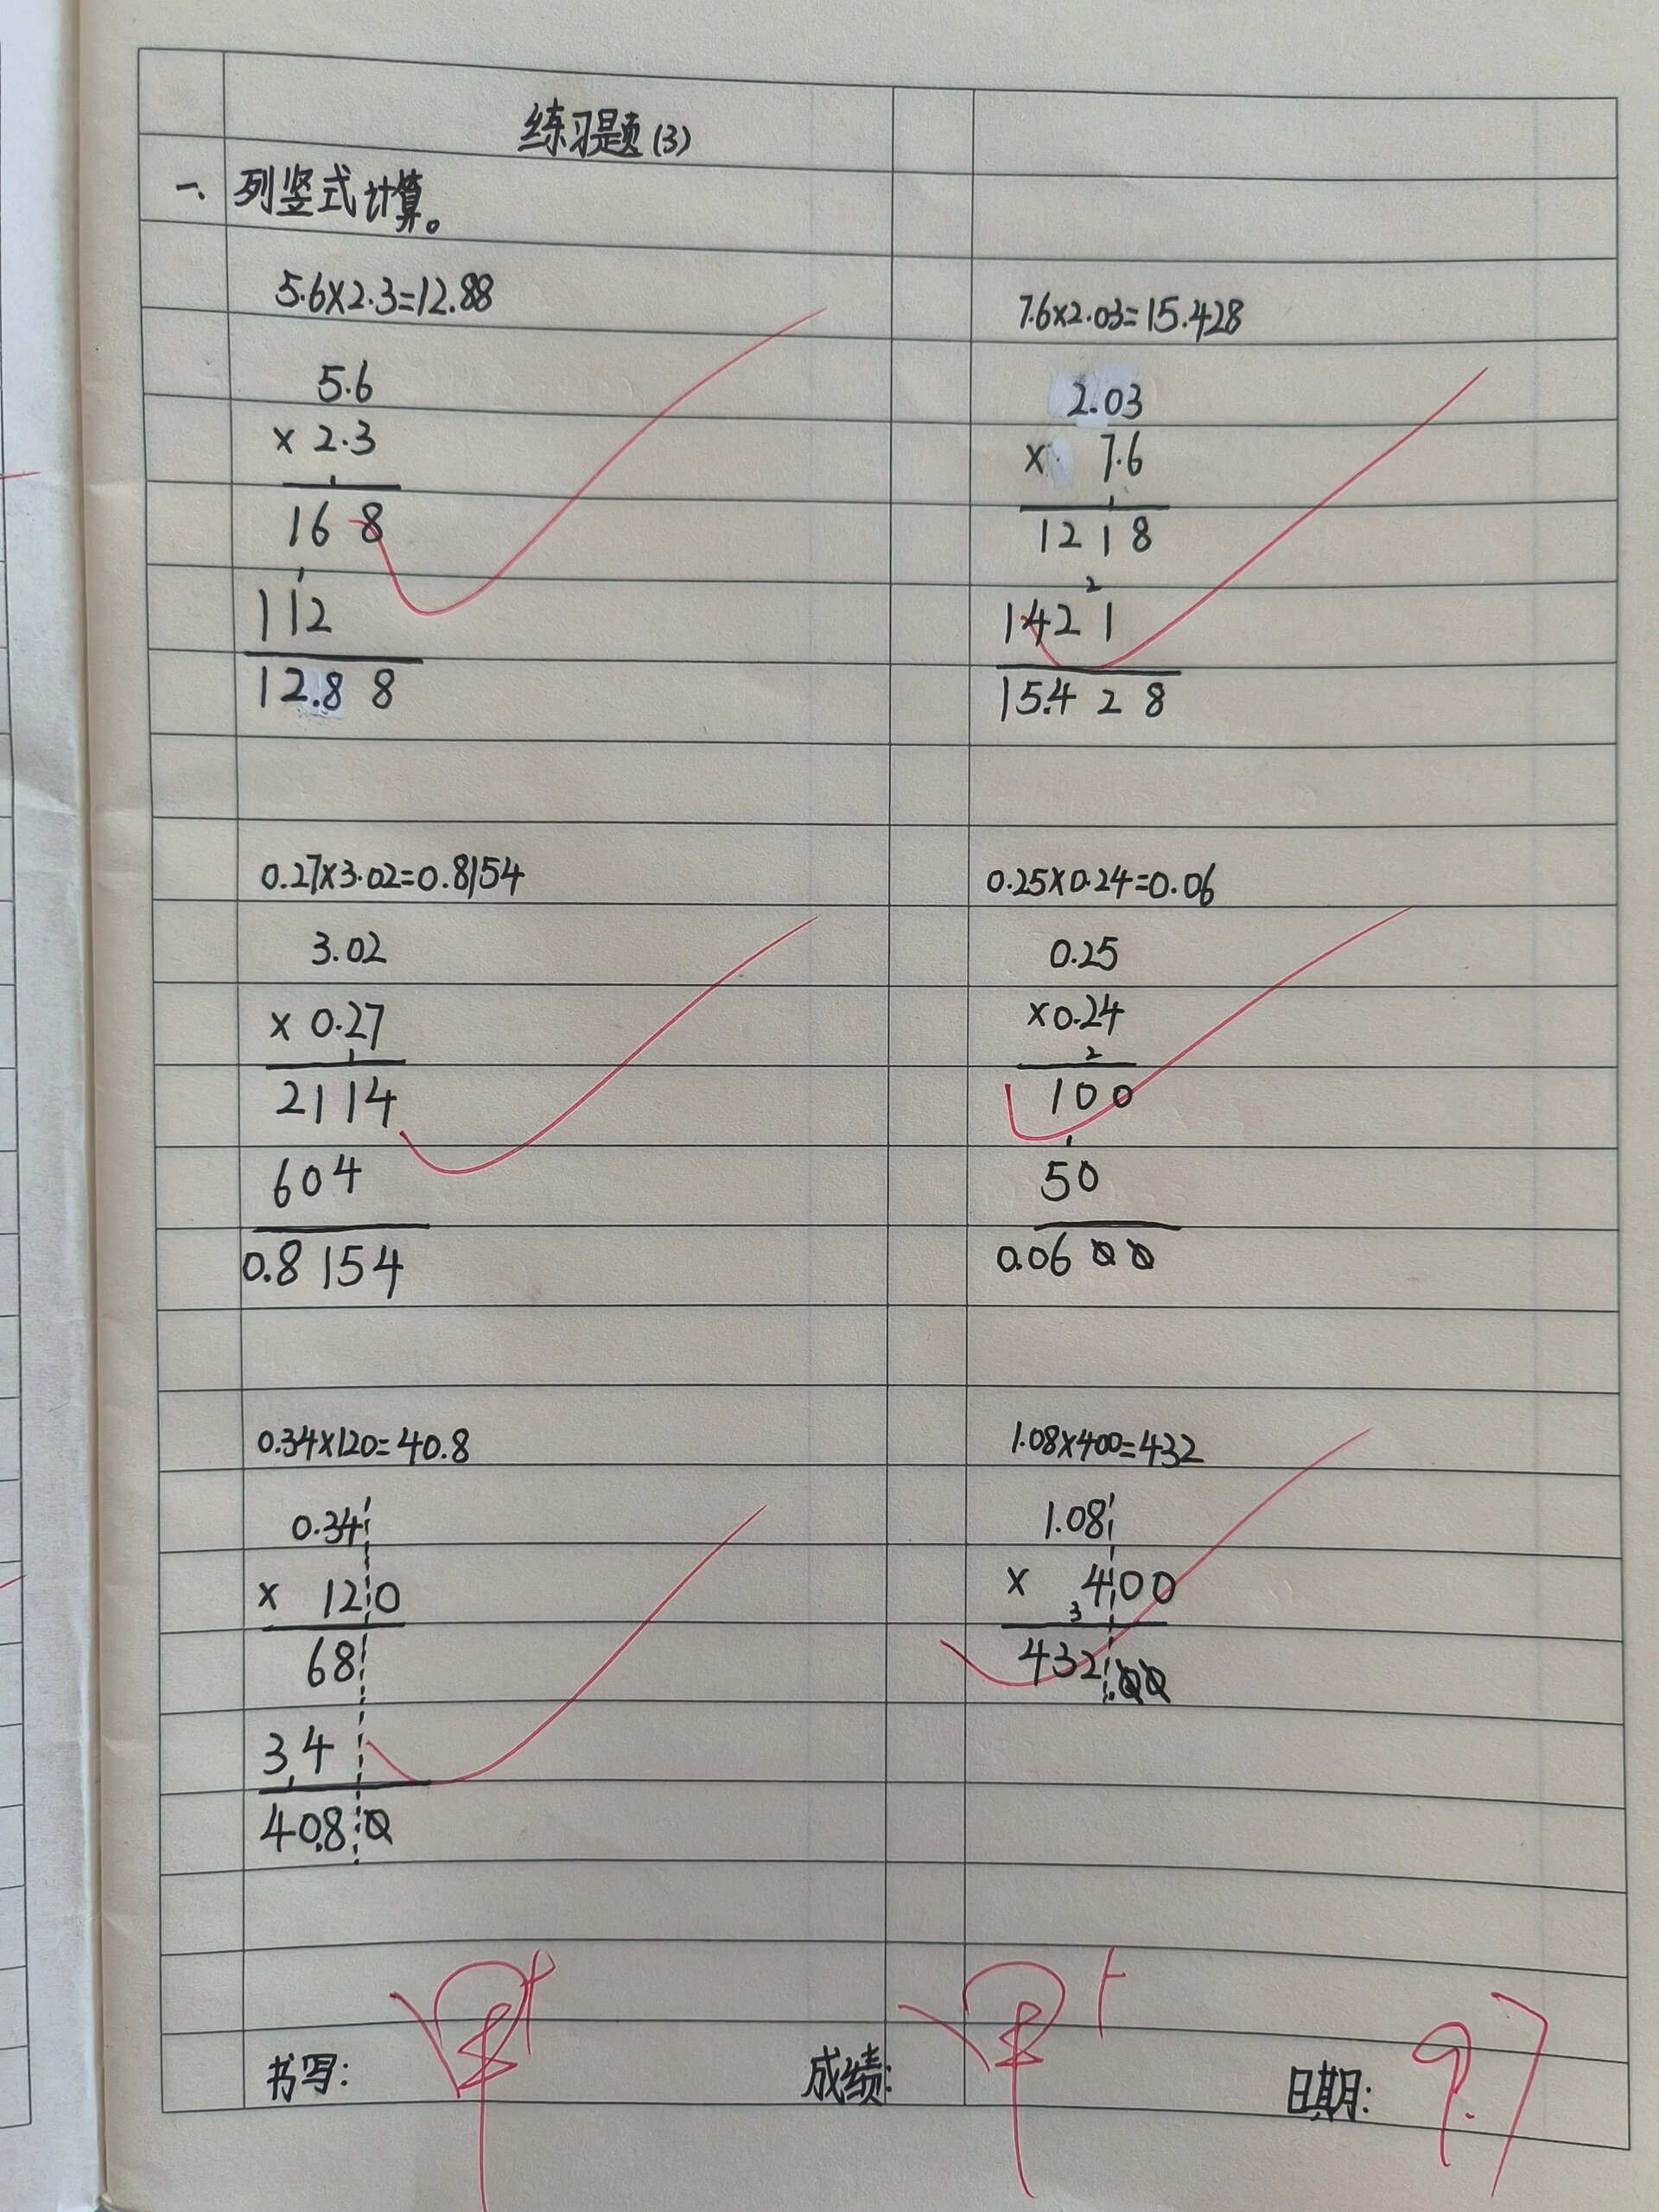 练习题(3)
一、列竖式计算。
5.6×2.3=12.88
5.6
× 2.3
1
16 8
1
112
12.8 8
7.6×2.03=15.428
2.03
× 7.6
1
121 8
2
142 1
15.4 2 8
0.27×3.02=0.8154
3.02
× 0.27
1
2114
604
0.8154
0.25×0.24=0.06
0.25
×0.24
2
100
1
50
0.0600
0.34×120=40.8
0.34
× 120
68
34
1
40.80
1.08×400=432
1.08
× 400
3
432.00
书写: 成绩: 日期: 9.7